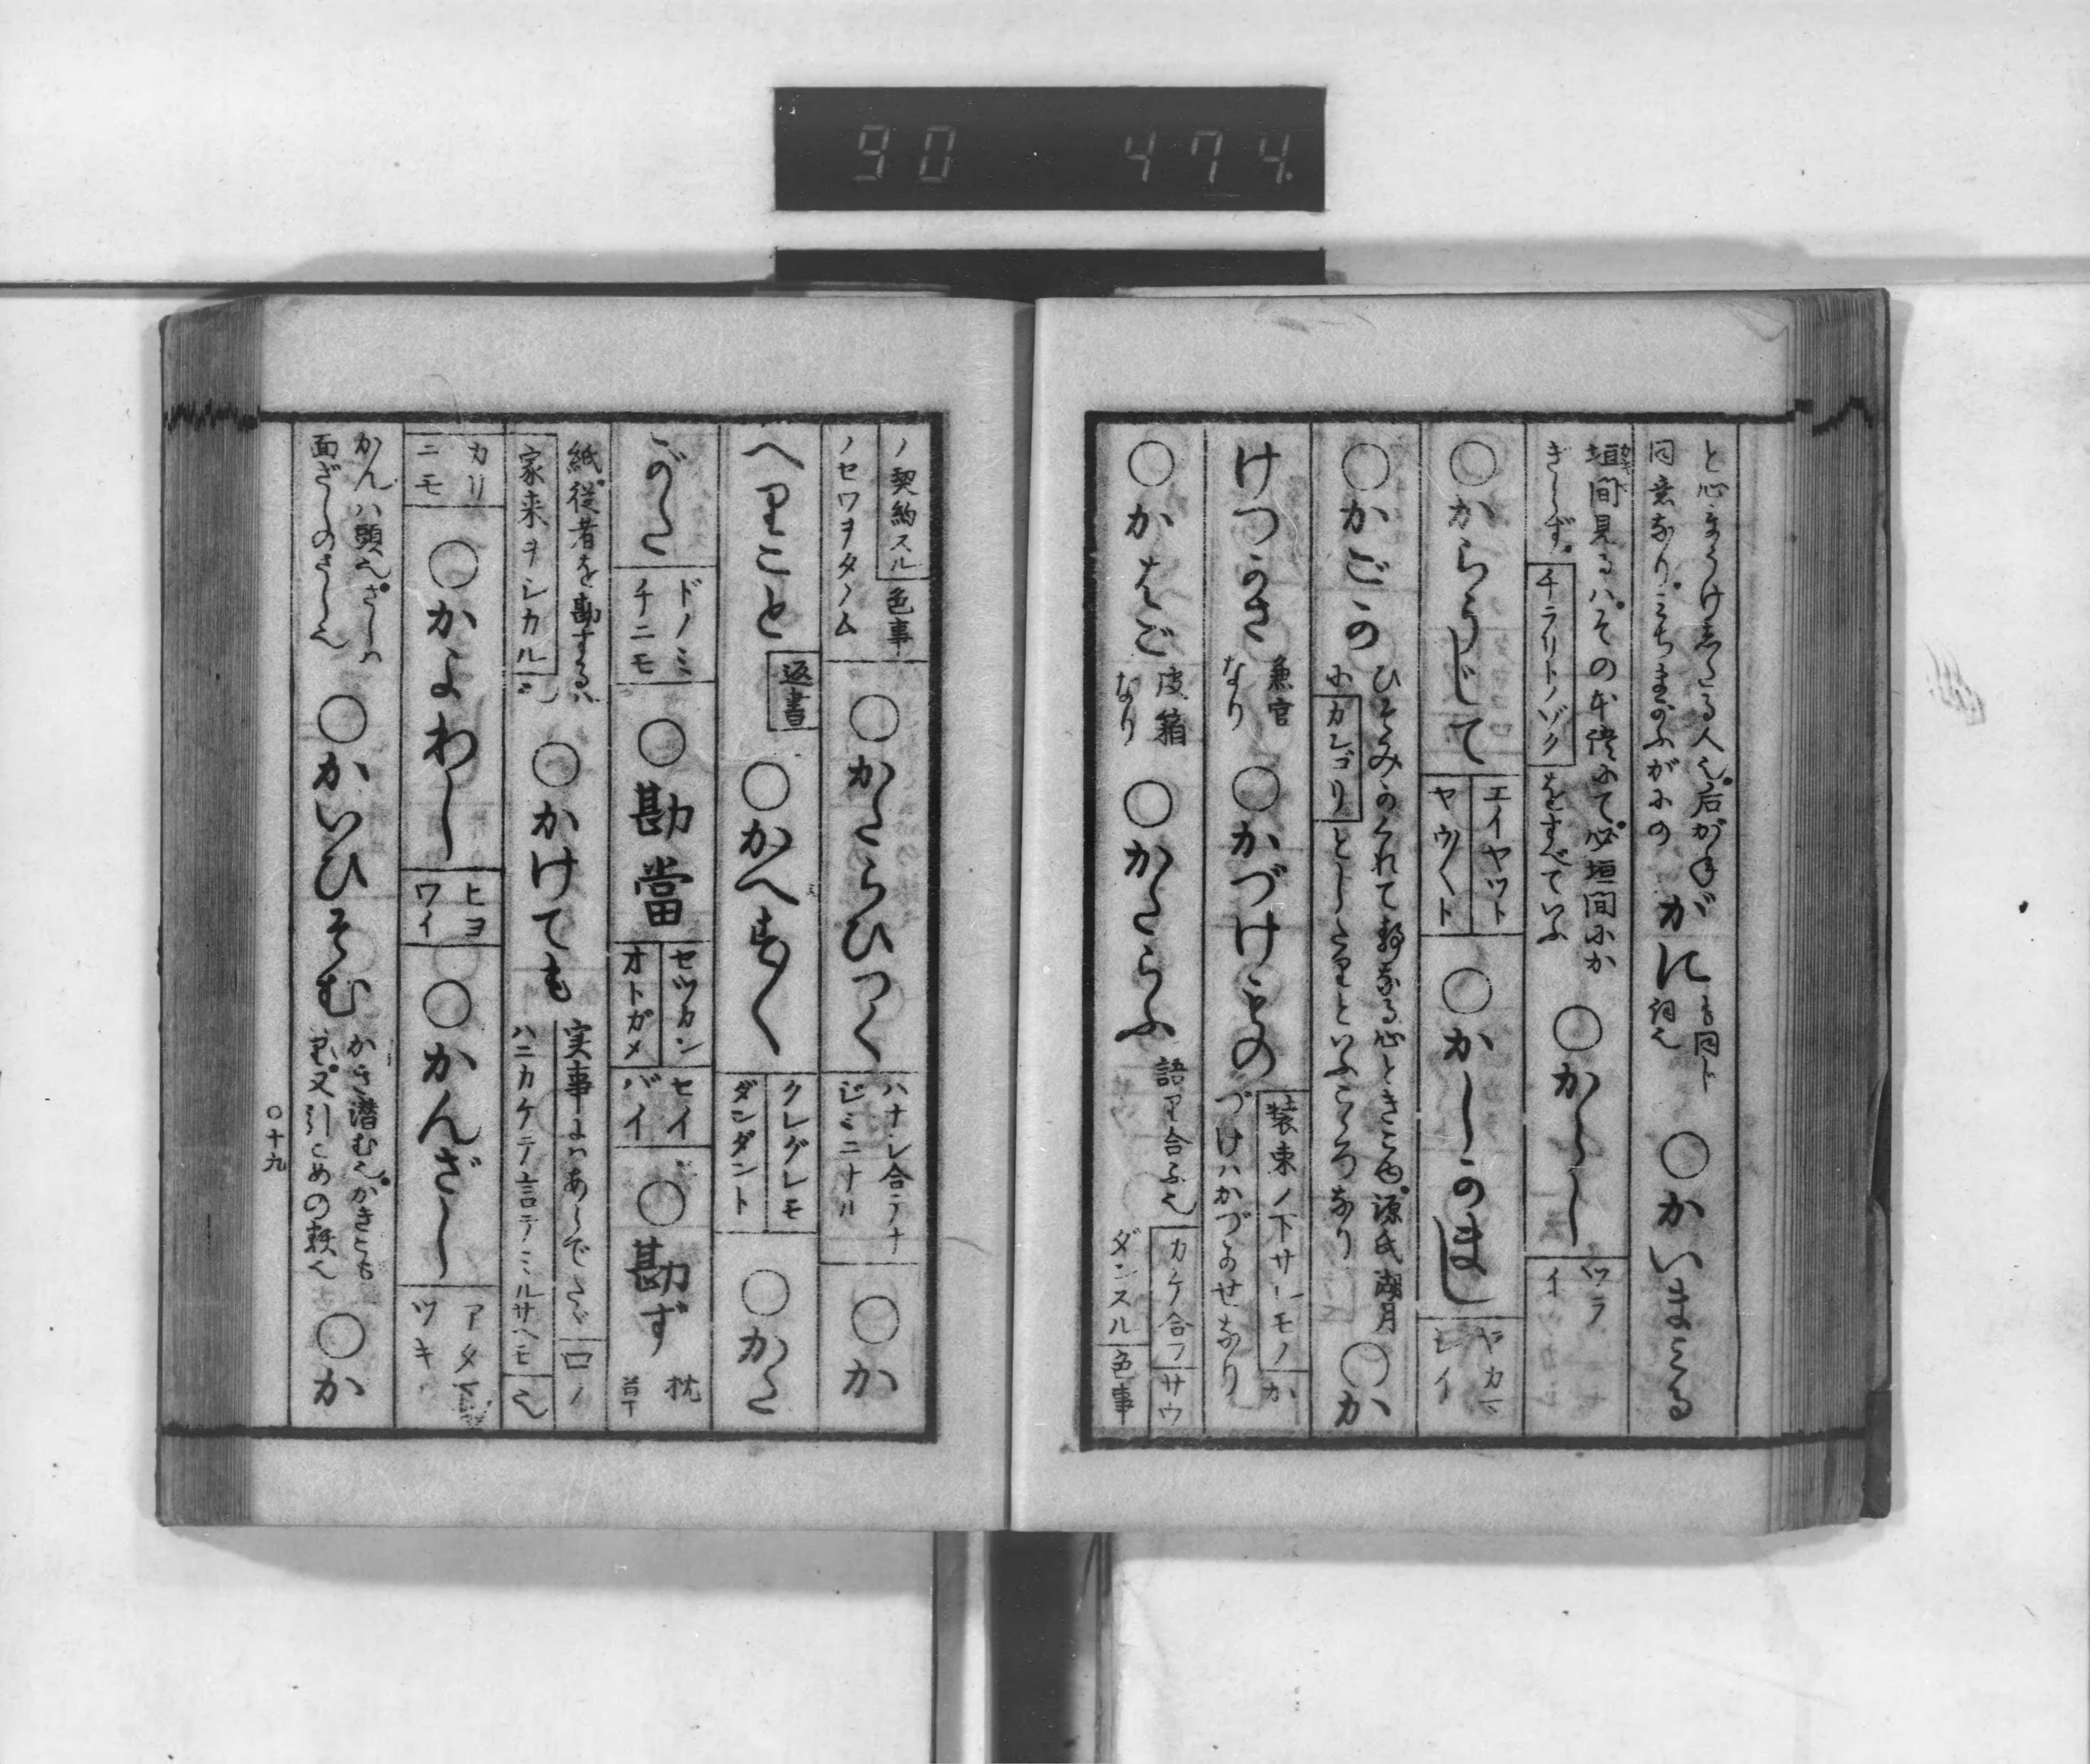 90 474
と心まうけしたる人也。后がねが
同意なり。みちまがふがにの
がに
も同じ
詞也
○かいまみる
垣間見るハ。その本語にて。必垣間にか
ぎらず。
チラリトノゾク
をすべていふ
○からし
ツライ
○からうじて
エイヤツト
ヤウ〱ト
○かしがまし
ヤカマ
シイ
○かごか
ひそみかくれて静なる心ときこゆ。源氏湖月
に
カンゴリ
としたりといふこゝろなり
○か
けづかさ
兼官
なり
○かづけもの
装束ノ下サレモノ
か
づけハかづかせなり
○かはご
皮籠
なり
○かたらふ
語り合ふ也
カケ合フ
サウ
ダンスル
色事
ノ契約スル
色事
ノセワヲタノム
○かたらひつく
ハナシ合テナ
ジミニナル
○か
へりこと
返書
○かへす〲
クレグレモ
ダンダント
○かた
がた
ドノミ
チニモ
○勘當
セツカン
オトガメ
セイ
バイ
○勘ず
枕
草
紙。従者を勘するハ
家来ヲシカル
○かけても
実事にハあらでたゞ
口ノ
ハニカケテ言テミルサヘモ
也
カリ
ニモ
○かよわし
ヒヨ
ワイ
○かんざし
アタマ
ツキ
かんハ頭也。ざしハ
面ざしのさし也
○かいひそむ
かき潜む也。かきこも
る。又引こめの類也
○か
○十九